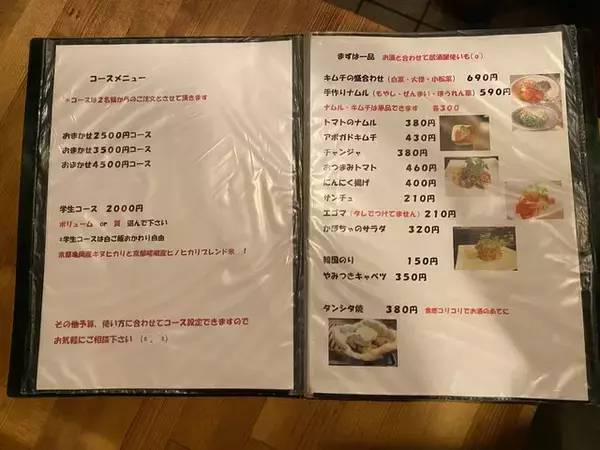 コースメニュー
*コースは2名様からのご注文とさせて頂きます
おまかせ2500円コース
おまかせ3500円コース
おまかせ4500円コース
学生コース 2000円
ボリューム or 質 選んで下さい
*学生コースは白ご飯おかわり自由
京都亀岡産キヌヒカリと京都嵯峨産ヒノヒカリブレンド米 !
その他予算、使い方に合わせてコース設定できますので
お気軽にご相談下さい
まずは一品 お酒と合わせて居酒屋使いも(o)
キムチの盛合わせ (白菜・大根・小松菜) 690円
手作りナムル (もやし・ぜんまい・ほうれん草) 590円
ナムル・キムチは単品できます 各300
トマトのナムル 380円
アボガドキムチ 430円
チャンジャ 380円
おつまみトマト 460円
にんにく揚げ 400円
サンチュ 210円
エゴマ (タレでつけてません) 210円
かぼちゃのサラダ 320円
韓国のり 150円
やみつきキャベツ 350円
タンシタ焼 380円 食感コリコリでお酒のあてに